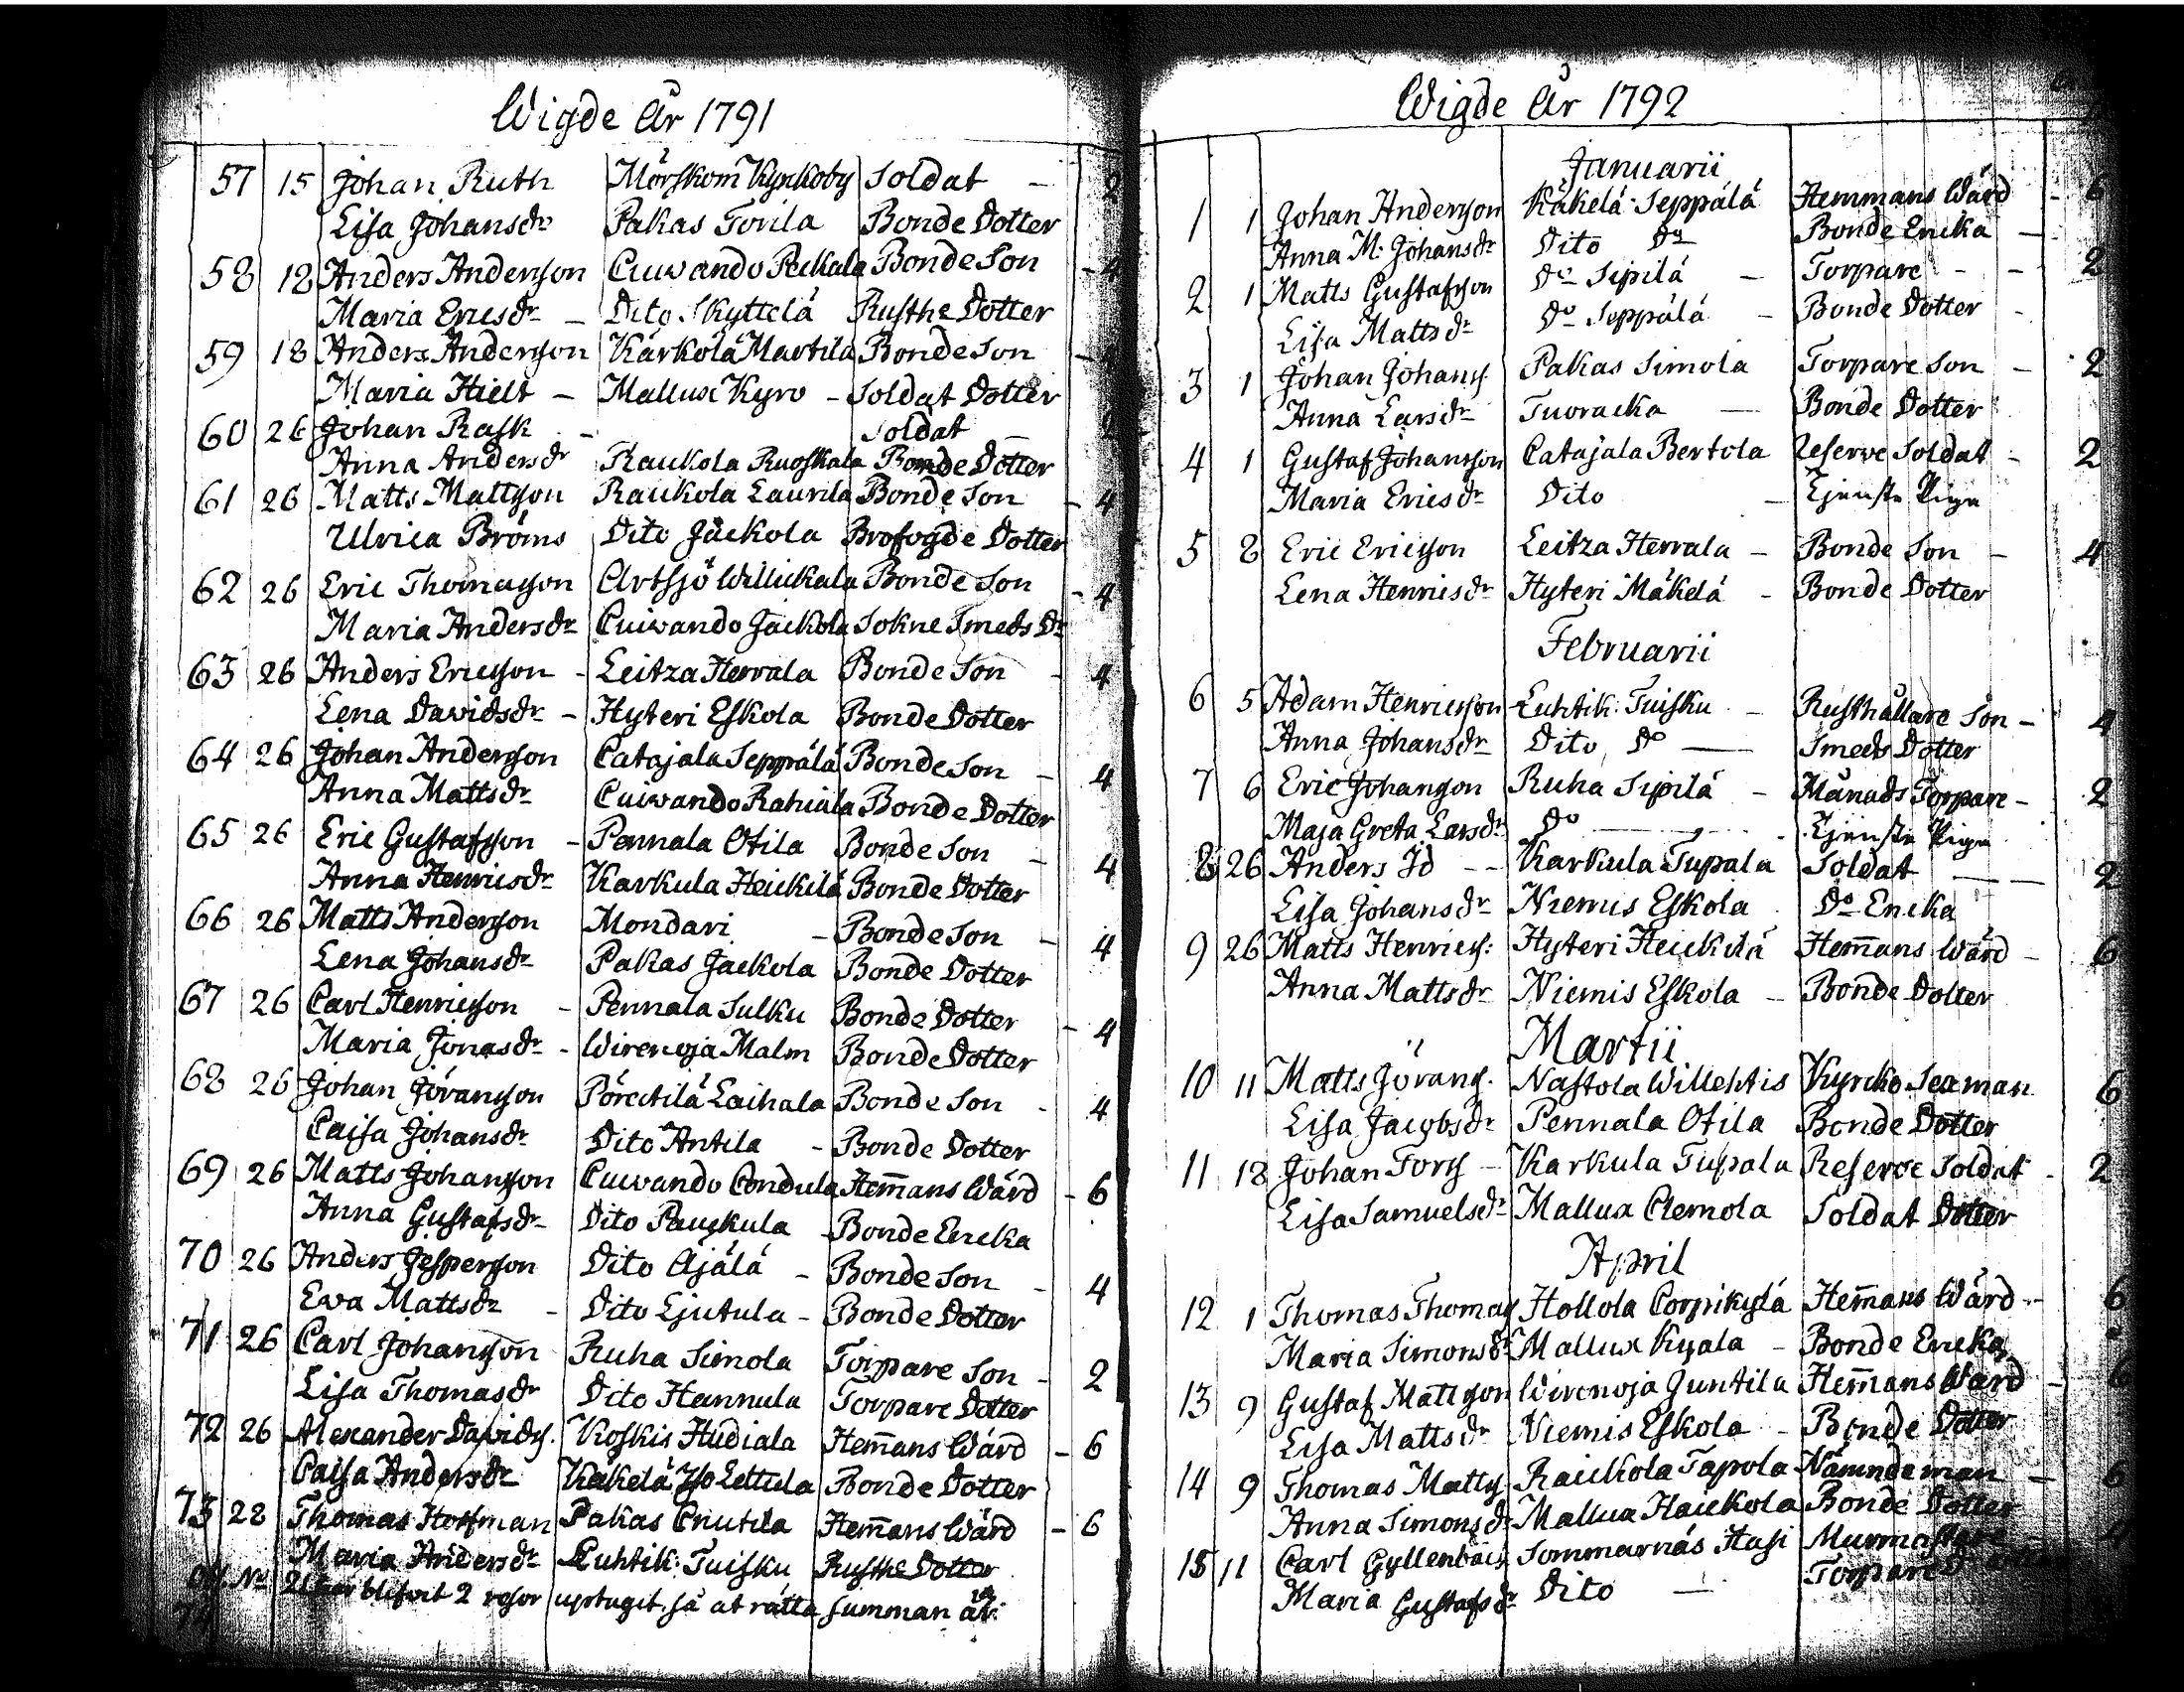 Wigde År 1791
57 15 Johan Ruth Mörskom Kyrkoby Soldat - 2
Lisa Johansdr Pakas Torila Bonde Dotter
58 18 Anders Andersson Cuivando Peckala Bonde Son - 4
Maria Ericsdr - Dito Skyttelä Rusth: Dotter
59 18 Anders Andersson Kärkölä Martila Bonde Son - 4
Maria Hielt - Mallux Kyro - Soldat Dotter
60 26 Johan Rask - Soldat - 2
Anna Andersdr Raukola Ruoskala Bonde Dotter
61 26 Matts Mattsson Raukola Laurila Bonde Son - 4
Ulrica Bröms Dito Jäckola Brofogde Dotter
62 26 Eric Thomasson Artsjö Willickala Bonde Son - 4
Maria Andersdr Cuivando Jackola Sokne Smeds Dr
63 26 Anders Ericsson - Leitza Herrala Bonde Son - 4
Lena Davidsdr - Hyteri Eskola Bonde Dotter
64 26 Johan Andersson Catajala Seppälä Bonde Son - 4
Anna Mattsdr Cuivando Rahiala Bonde Dotter
65 26 Eric Gustafsson - Pennala Otila Bonde Son - 4
Anna Henricsdr Karkula Heickilä Bonde Dotter
66 26 Matts Andersson Mondari - Bonde Son - 4
Lena Johansdr Pakas Jackola Bonde Dotter
67 26 Carl Henricsson - Pennala Sulku Bonde Dotter - 4
Maria Jonasdr - Wirenoja Malm Bonde Dotter
68 26 Johan Jöransson Pöretilä Laihala Bonde Son - 4
Caisa Johansdr Dito Antila - Bonde Dotter
69 26 Matts Johansson Cuivando Condula Hem̄ans Wärd - 6
Anna Gustafsdr Dito Pauckula - Bonde Encka
70 26 Anders Jespersson Dito Äjälä - Bonde Son - 4
Ewa Mattsdr - Dito Ljutula - Bonde Dotter
71 26 Carl Johansson Ruha Simola Torpare Son - 2
Lisa Thomasdr Dito Hannula Torpare Dotter
72 26 Alexander Davids. Koskis Hudiala Hem̄ans Wärd - 6
Caisa Andersdr Käkelä Iso Lettula Bonde Dotter
73 28 Thomas Hoffman Pakas Cnutila Hem̄ans Wärd - 6
Maria Andersdr Luhtik: Tuisku Rusth: Dotter
No 21 har blifvit 2 rgsor uptagit, så at rätta summan är
74
Wigde År 1792
Januarii
1 1 Johan Andersson Käkelä Seppälä Hemmans Wärd - 6
Anna M. Johansdr Dito Do Bonde Encka -
2 1 Matts Gustafsson Do Sipilä - Torpare - - 2
Lisa Mattsdr Do Seppälä - Bonde Dotter -
3 1 Johan Johans. Pakas Simola Torpare Son - 2
Anna Larsdr Tuoracka - Bonde Dotter
4 1 Gustaf Johansson Catajala Bertola Reserve Soldat - 2
Maria Ericsdr Dito - Tjenste Piga
5 8 Eric Ericsson Leitza Herrala - Bonde Son - 4
Lena Henricsdr Hyteri Mäkelä - Bonde Dotter
Februarii
6 5 Adam Henricsson Luhtik: Tuisku - Rusthållare Son - 4
Anna Johansdr Dito Do - Smeds Dotter
7 6 Eric Johansson Ruha Sipilä - Månads Torpare - 2
Maja Greta Larsdr Do - Tjenste Piga
8 26 Anders Id - - Karkula Tupala Soldat - - 2
Lisa Johansdr Niemis Eskola Do Encka
9 26 Matts Henrics: Hyteri Heickilä Hem̄ans Wärd - 6
Anna Mattsdr Niemis Eskola - Bonde Dotter
Martii
10 11 Matts Jörans. Nastola Willehtis Kyrcko Sexman 6
Lisa Jacobsdr Pennala Otila Bonde Dotter
11 18 Johan Fors - Karkula Tupala Reserve Soldat - 2
Lisa Samuelsdr Mallux Clemola Soldat Dotter
April
12 1 Thomas Thomas Hollola Corpikylä Hem̄ans Wärd - 6
Maria Simonsdr Mallux Kyala - Bonde Encka
13 9 Gustaf Mattsson Wirenoja Juntila Hem̄ans Wärd - 6
Lisa Mattsdr Niemis Eskola - Bonde Dotter
14 9 Thomas Matts Raickola Tapola Nämndeman - 6
Anna Simonsdr Mallux Haickola Bonde Dotter
15 11 Carl Gyllenbäis Sommarnäs Hasi Murmästare - 4
Maria Gustafsdr Dito - Torpare